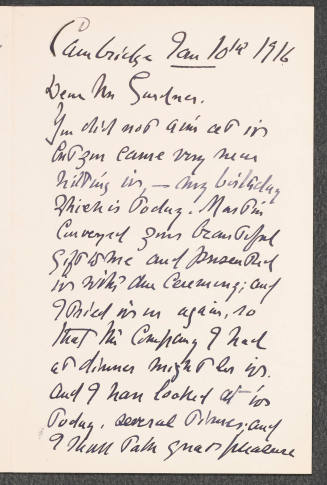 Cambridge Jan 10th 1916
Dear Mrs Gardner.
You did not aim at it
but you came very near
hitting it, – my birthday
which is today. Martin
conveyed your beautiful
gift to me and presented
it with due ceremony; and
I tried it on again, so
that the Company I had
at dinner might see it.
And I have looked at it
today, several times; and
I shall take great pleasure